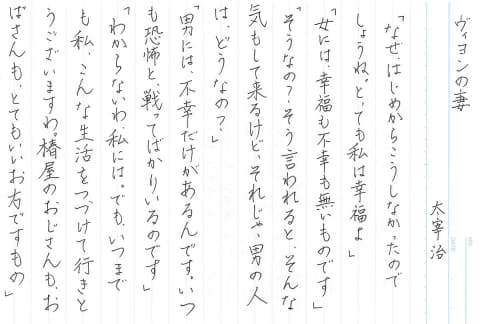 ヴィヨンの妻
太宰治
「なぜ、はじめからこうしなかったので
しょうね。とっても私は幸福よ」
「女には、幸福も不幸も無いものです」
「そうなの?そう言われると、そんな
気もして来るけど、それじゃ、男の人
は、どうなの?」
「男には、不幸だけがあるんです。いつ
も恐怖と、戦ってばかりいるのです」
「わからないわ、私には。でも、いつまで
も私、こんな生活をつづけて行きと
うございますわ。椿屋のおじさんも、お
ばさんも、とてもいいお方ですもの」